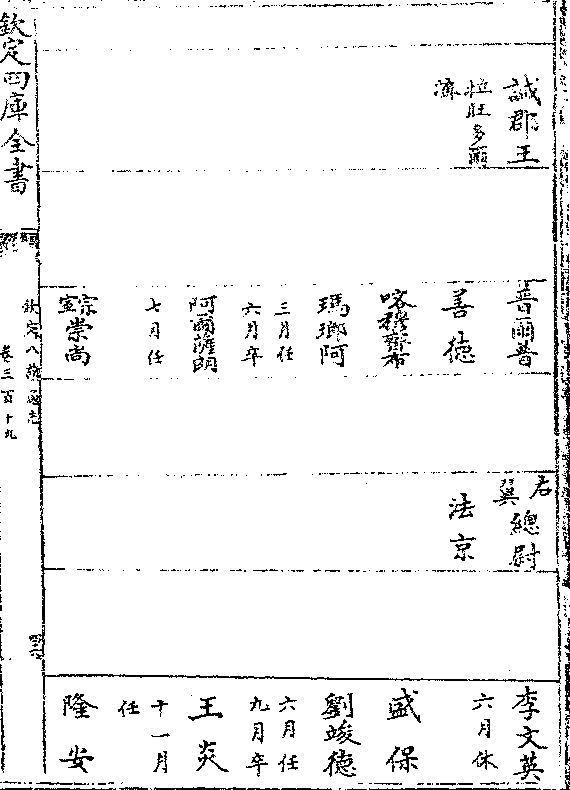 誠郡王
拉旺多爾
濟
普爾普
善德
喀穆齊布
瑪瑯阿
三月任
六月卒
阿爾薩朗
七月任
宗室
崇尚
右翼總尉
法京
李文英
六月休
盛保
劉竣德
六月任
九月卒
王炎
十一月
任
隆安
欽定四庫全書
欽定八旗通志
卷三百十九